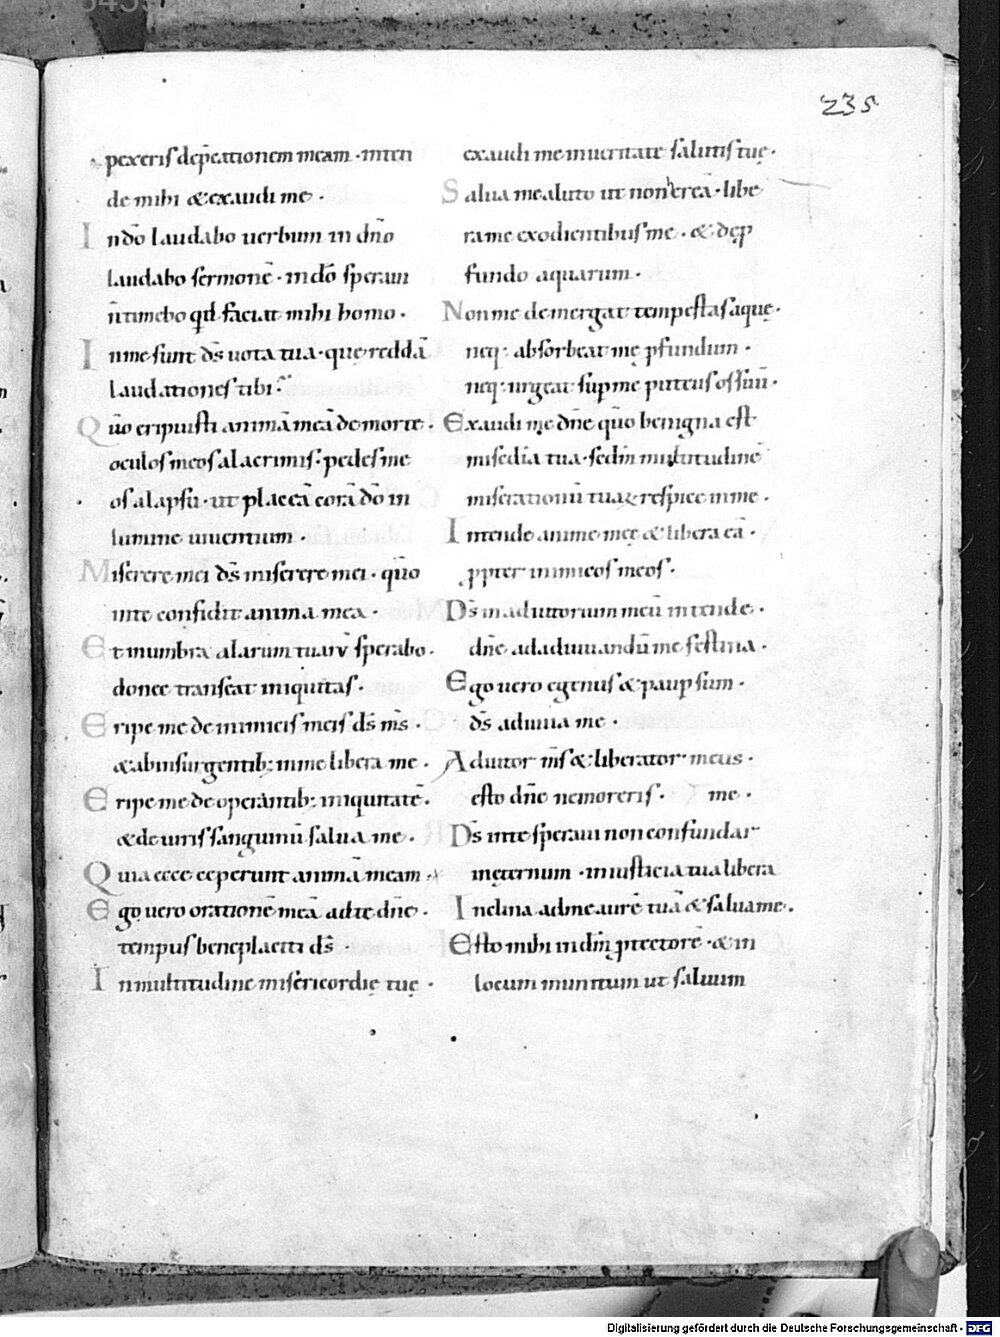 235
pexeris dep̄cationem meam · inten
de mihi & exaudi me ·
In dō laudabo uerbum in dn̄o
laudabo sermonē · in dō speraui
n̄ timebo qd̄ faciat mihi homo ·
In me sunt ds̄ uota tua · que reddā
laudationes tibi ·
Qūo eripuisti animā meā de morte ·
oculos meos a lacrimis · pedes me
os a lapsū · ut placeā corā dō in
lumine uiuentium ·
Miserere mei ds̄ miserere mei · qūo
in te confidit anima mea ·
Et in umbra alarum tuarū sperabo ·
donec transeat iniquitas ·
Eripe me de inimicis meis ds̄ ms̄ ·
& ab insurgentib; in me libera me ·
Eripe me de operantib; iniquitatē ·
& de uiris sanguinū salua me ·
Quia ecce ceperunt animā meam ·
Ego uero orationē meā ad te dn̄e ·
tempus beneplaciti ds̄ ·
In multitudine misericordię tuę ·
exaudi me in ueritate salutis tuę ·
Salua me a luto ut non hereā · libe
ra me ex odientibus me · & de p̄
fundo aquarum ·
Non me demergat tempestas aquę ·
neq; absorbeat me ꝓfundum ·
neq; urgeat sup me puteus os suū ·
Exaudi me dn̄e qūo benigna est
misc̄dia tua · sedm̄ multitudinē
miserationū tuaꝝ respice in me ·
Intende anime meę & libera eā ·
ꝓpter inimicos meos ·
Ds̄ in adiutorium meū intende ·
dn̄e ad adiuuandū me festina ·
Ego uero egenus & paup sum ·
ds̄ adiuua me ·
Adiutor ms̄ & liberator meus ·
esto dn̄e ne moreris · me ·
Ds̄ in te speraui non confundar
in ęternum · in iusticia tua libera
Inclina ad me aurē tuā & salua me ·
Esto mihi in dm̄ ꝓtectorē · & in
locum munitum ut saluum
Digitalisierung gefördert durch die Deutsche Forschungsgemeinschaft - DFG